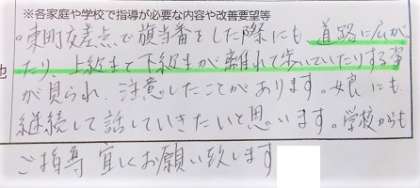 ※各家庭や学校で指導が必要な内容や改善要望等
。東町交差点で旗当番をした際にも、道路に広が
ったり、上級生と下級生が離れて歩いていたりする事
が見られ、注意したことがあります。娘にも
継続して話していきたいと思います。学校からも
ご指導宜しくお願い致します